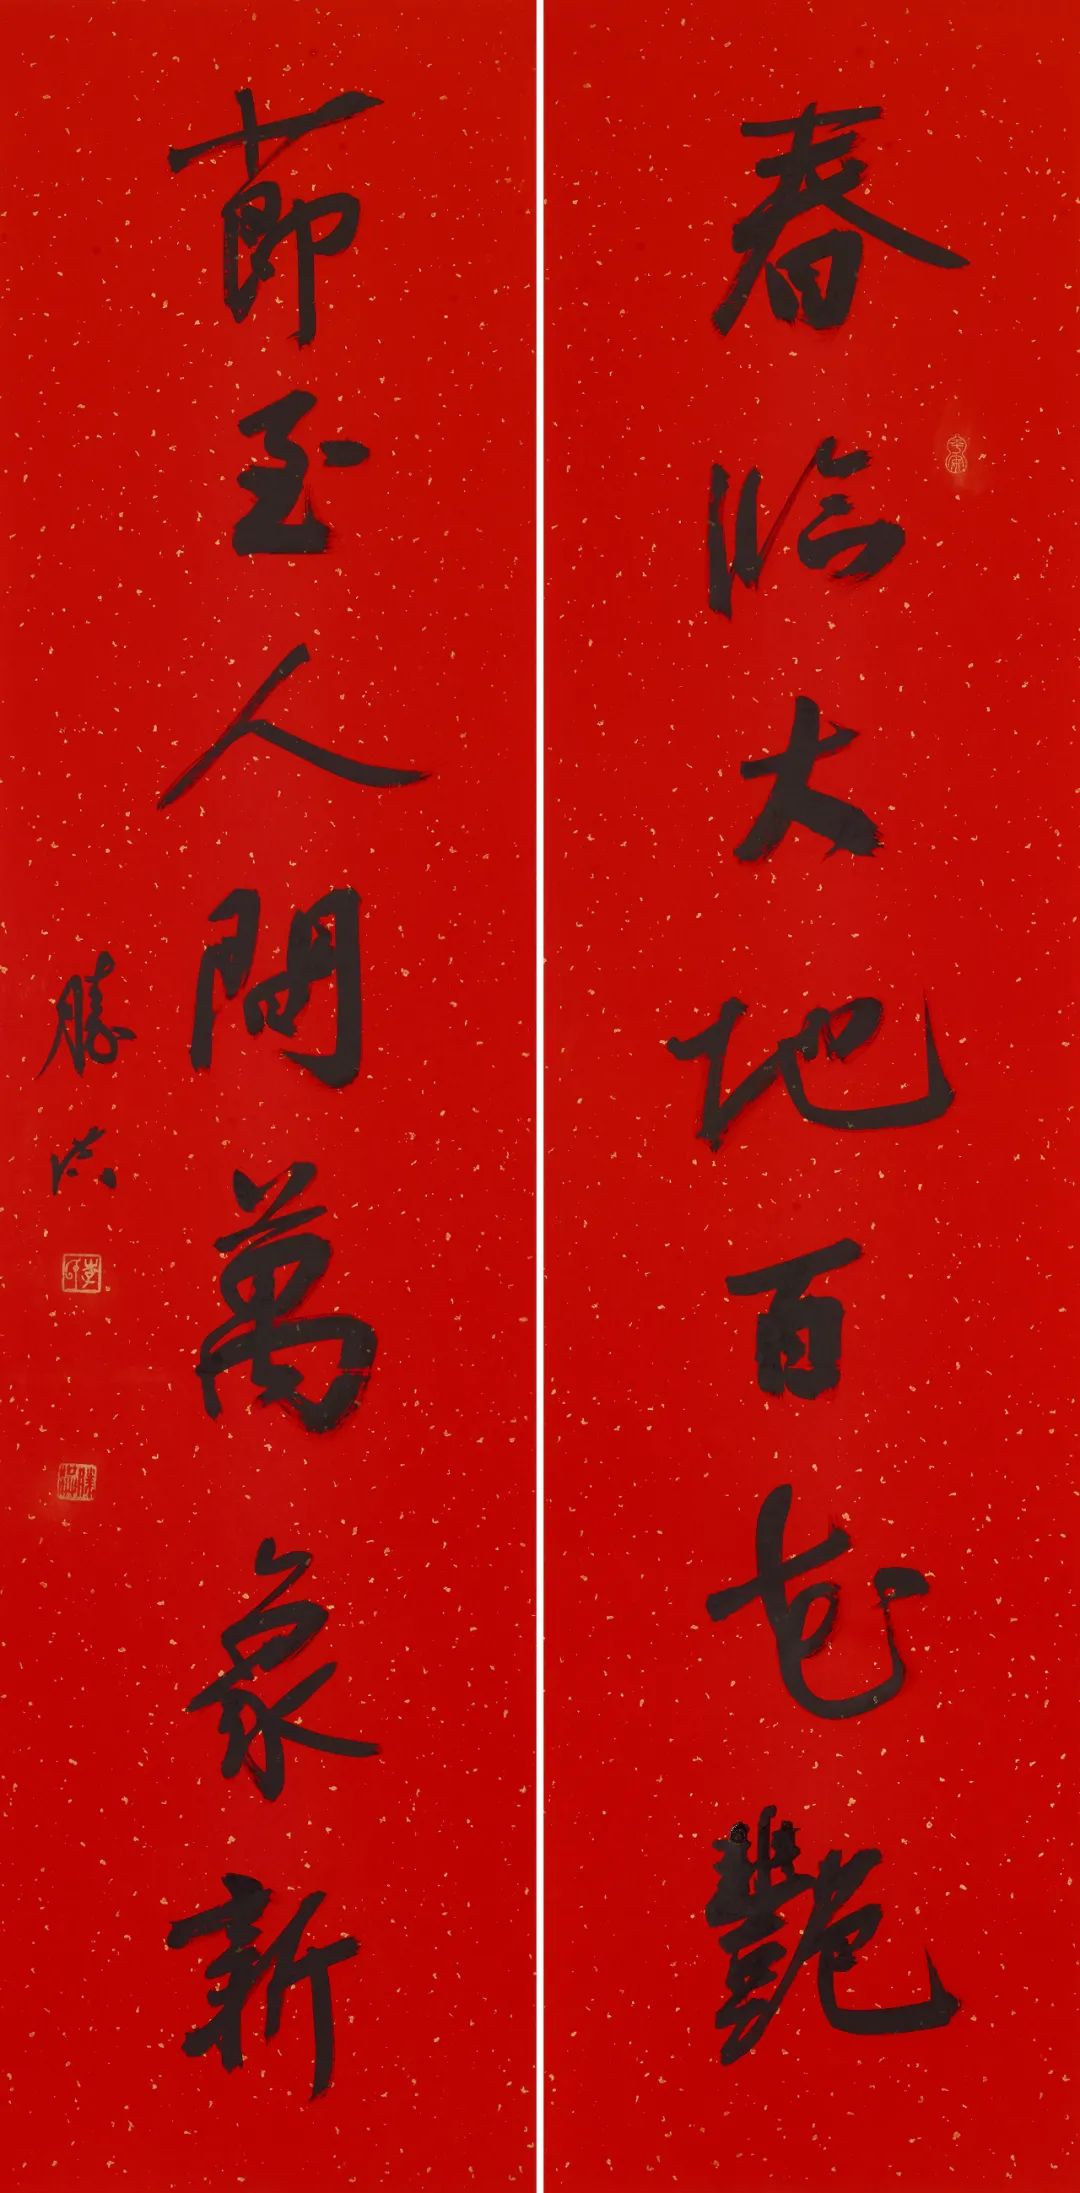 春臨大地百花艷
節至人間萬象新
勝洪